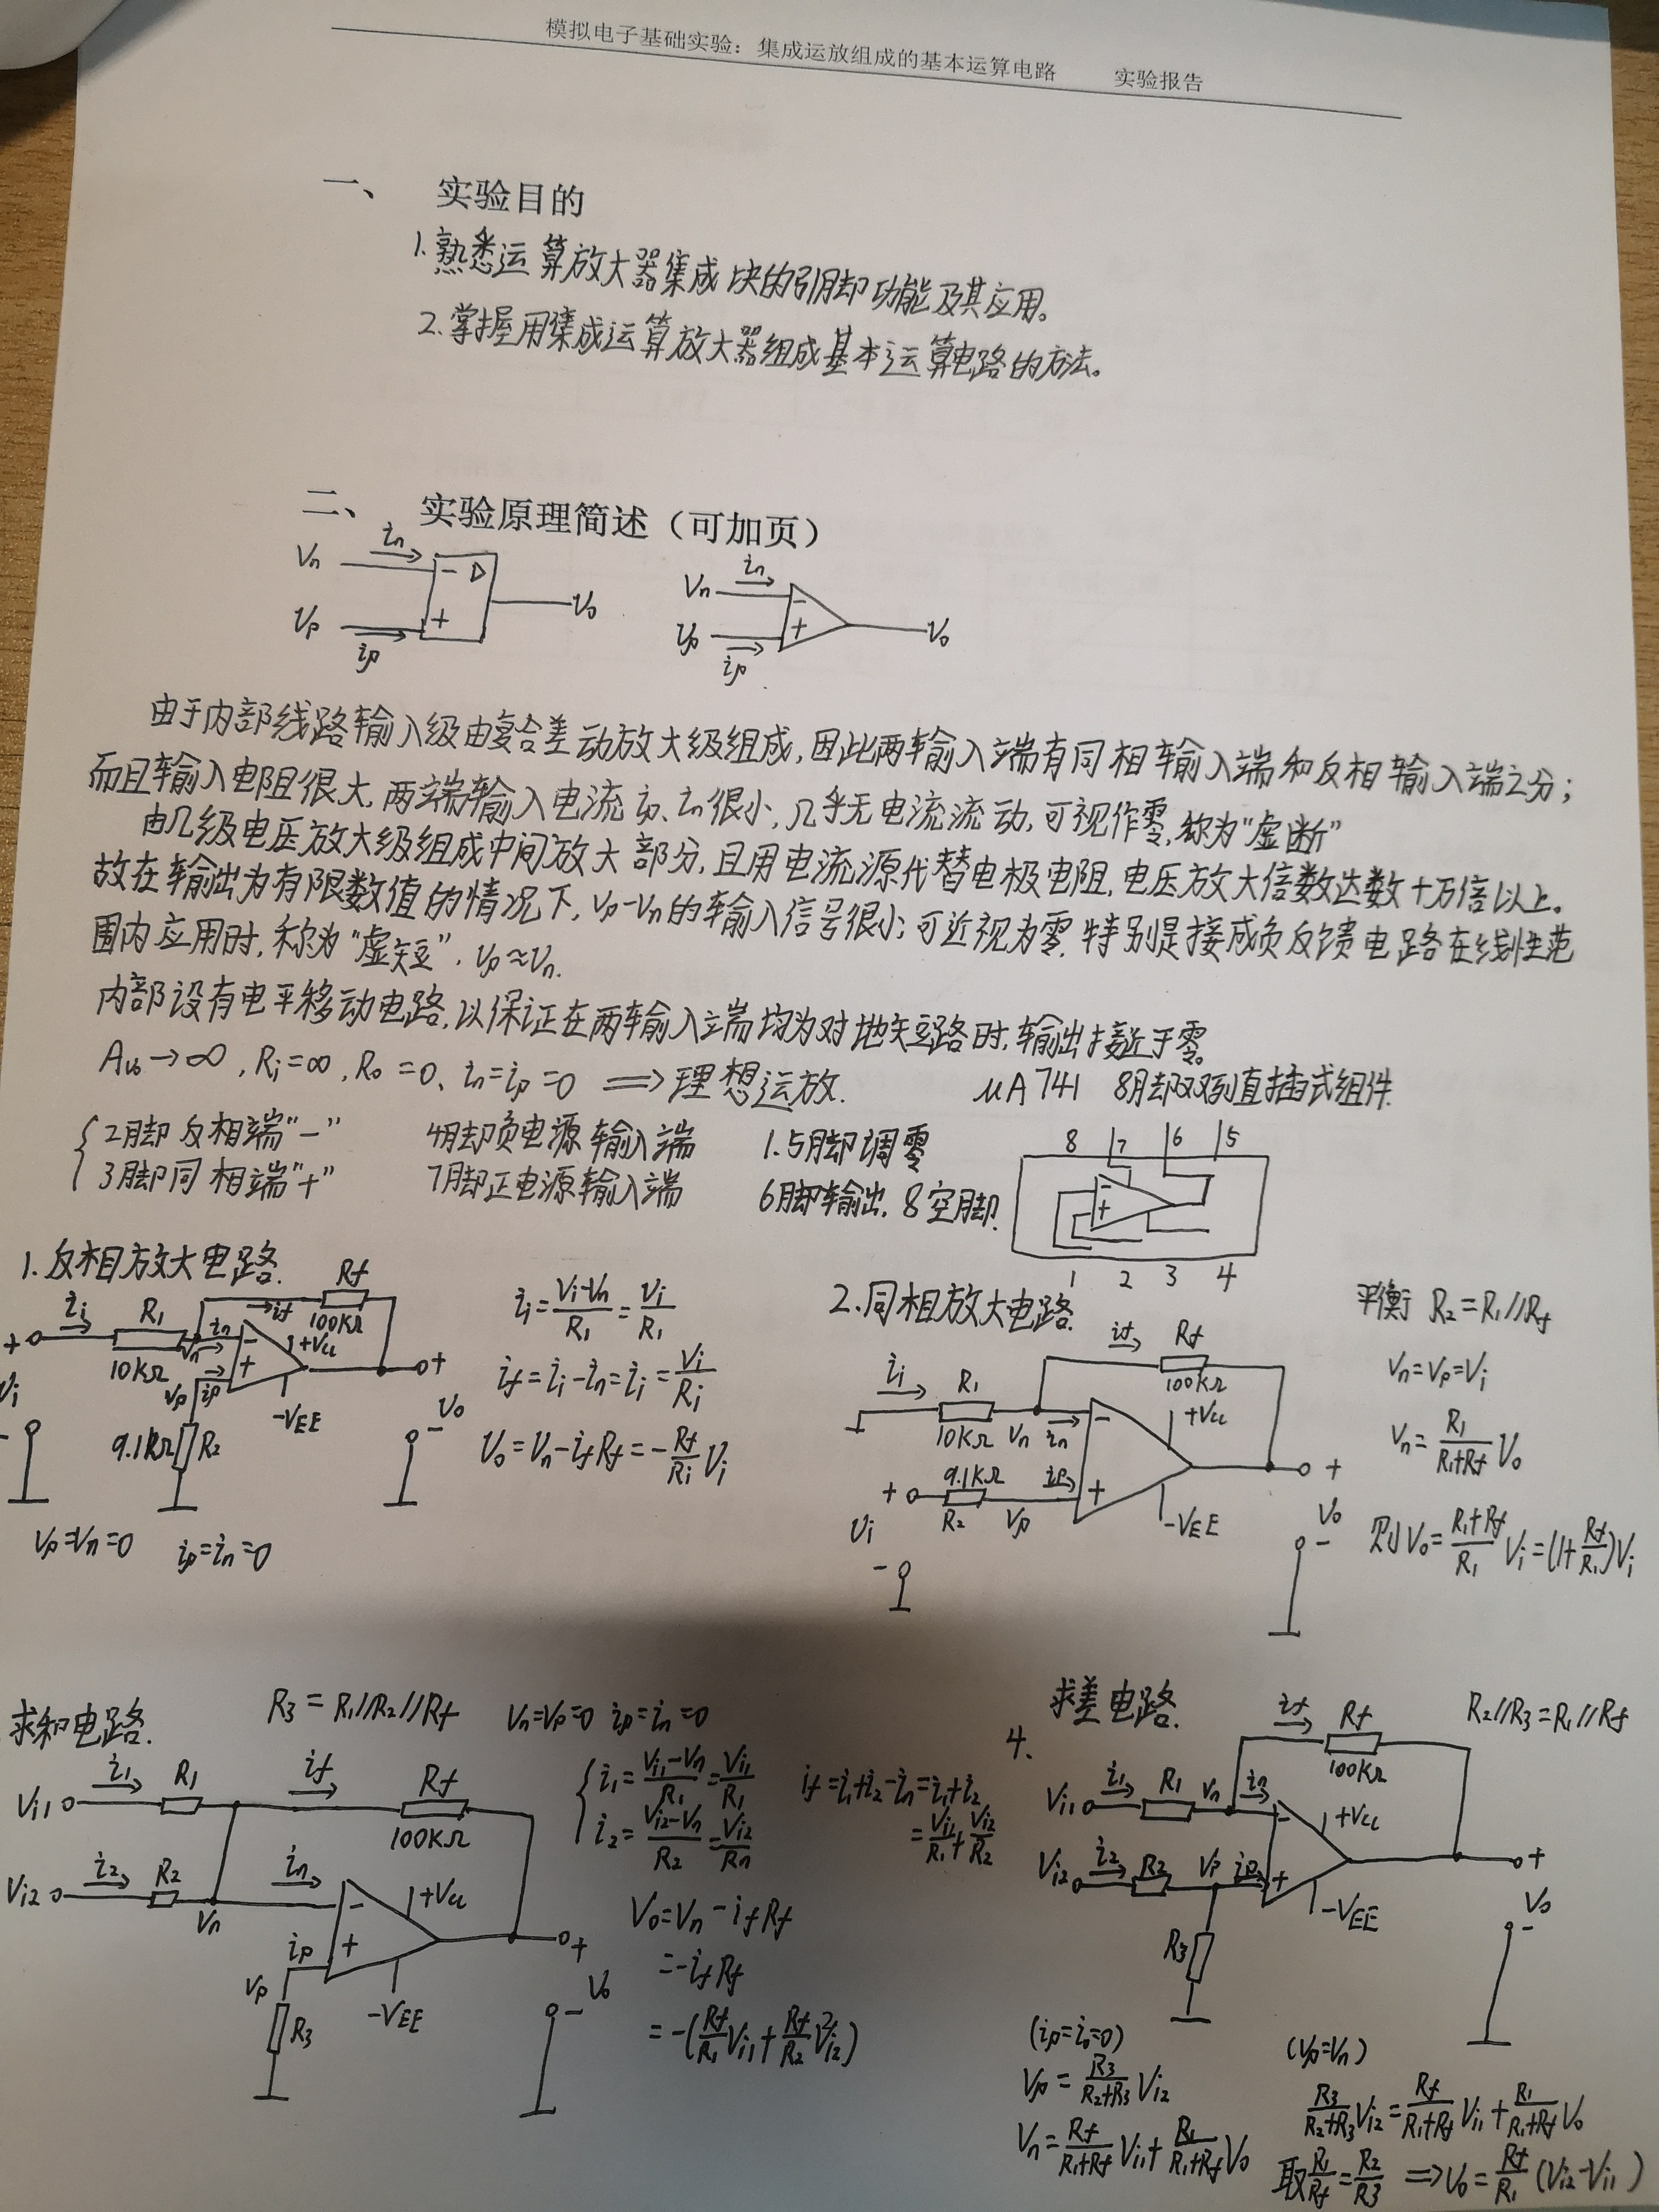 模拟电子基础实验：集成运放组成的基本运算电路 实验报告
一、 实验目的
1.熟悉运算放大器集成块的引脚功能及其应用。
2.掌握用集成运算放大器组成基本运算电路的方法。
二、 实验原理简述（可加页）
Vn in - ▷ Vo
Vp ip +
Vn in - Vo
Vp ip +
由于内部线路输入级由复合差动放大级组成,因此两输入端有同相输入端和反相输入端之分;
而且输入电阻很大,两端输入电流ip、in很小,几乎无电流流动,可视作零,称为"虚断"
由几级电压放大级组成中间放大部分,且用电流源代替电极电阻,电压放大倍数达数十万倍以上。
故在输出为有限数值的情况下,Vp-Vn的输入信号很小;可近视为零.特别是接成负反馈电路在线性范
围内应用时,称为"虚短",Vp≈Vn.
内部设有电平移动电路,以保证在两输入端均为对地短路时,输出接近于零。
Auo→∞,Ri=∞,Ro=0、in=ip=0 ⟹理想运放.
μA741 8脚双列直插式组件.
2脚反相端"-" 4脚负电源输入端 1.5脚调零
3脚同相端"+" 7脚正电源输入端 6脚输出.8空脚.
8 7 6 5
- +
1 2 3 4
1.反相放大电路.
Rf
100KΩ
ii R1 10KΩ
if in Vn
+VCC
-VEE
Vp ip
9.1KΩ R2
Vi Vo
ii=(Vi-Vn)/R1=Vi/R1
if=ii-in=ii=Vi/Ri
Vo=Vn-ifRf=-(Rf/Ri)Vi
Vp=Vn=0 ip=in=0
2.同相放大电路.
if Rf
100KΩ
ii R1
10KΩ Vn in
+VCC
9.1KΩ ip
R2 Vp
-VEE
Vi Vo
平衡 R2=R1//Rf
Vn=Vp=Vi
Vn=R1/(R1+Rf) Vo
则Vo=(R1+Rf)/R1 Vi=(1+Rf/R1)Vi
求和电路.
R3=R1//R2//Rf Vn=Vp=0 ip=in=0
Vi1 i1 R1 if Rf
100KΩ
Vi2 i2 R2 Vn in
+VCC
ip
Vp
-VEE
R3 Vo
i1=(Vi1-Vn)/R1=Vi1/R1
i2=(Vi2-Vn)/R2=Vi2/Rn
if=i1+i2-in=i1+i2
=Vi1/R1+Vi2/R2
Vo=Vn-ifRf
=-ifRf
=-(Rf/R1 Vi1+Rf/R2 Vi2)
4. 求差电路.
if Rf
100KΩ
R2//R3=R1//Rf
Vi1 i1 R1 Vn in
+VCC
Vi2 i2 R2 Vp ip
-VEE
R3 Vo
(ip=io=0)
Vp=R3/(R2+R3) Vi2
Vn=Rf/(R1+Rf) Vi1+R1/(R1+Rf) Vo
(Vp=Vn)
R3/(R2+R3) Vi2=Rf/(R1+Rf) Vi1+R1/(R1+Rf) Vo
取R1/Rf=R2/R3 ⟹Vo=Rf/R1(Vi2-Vi1)